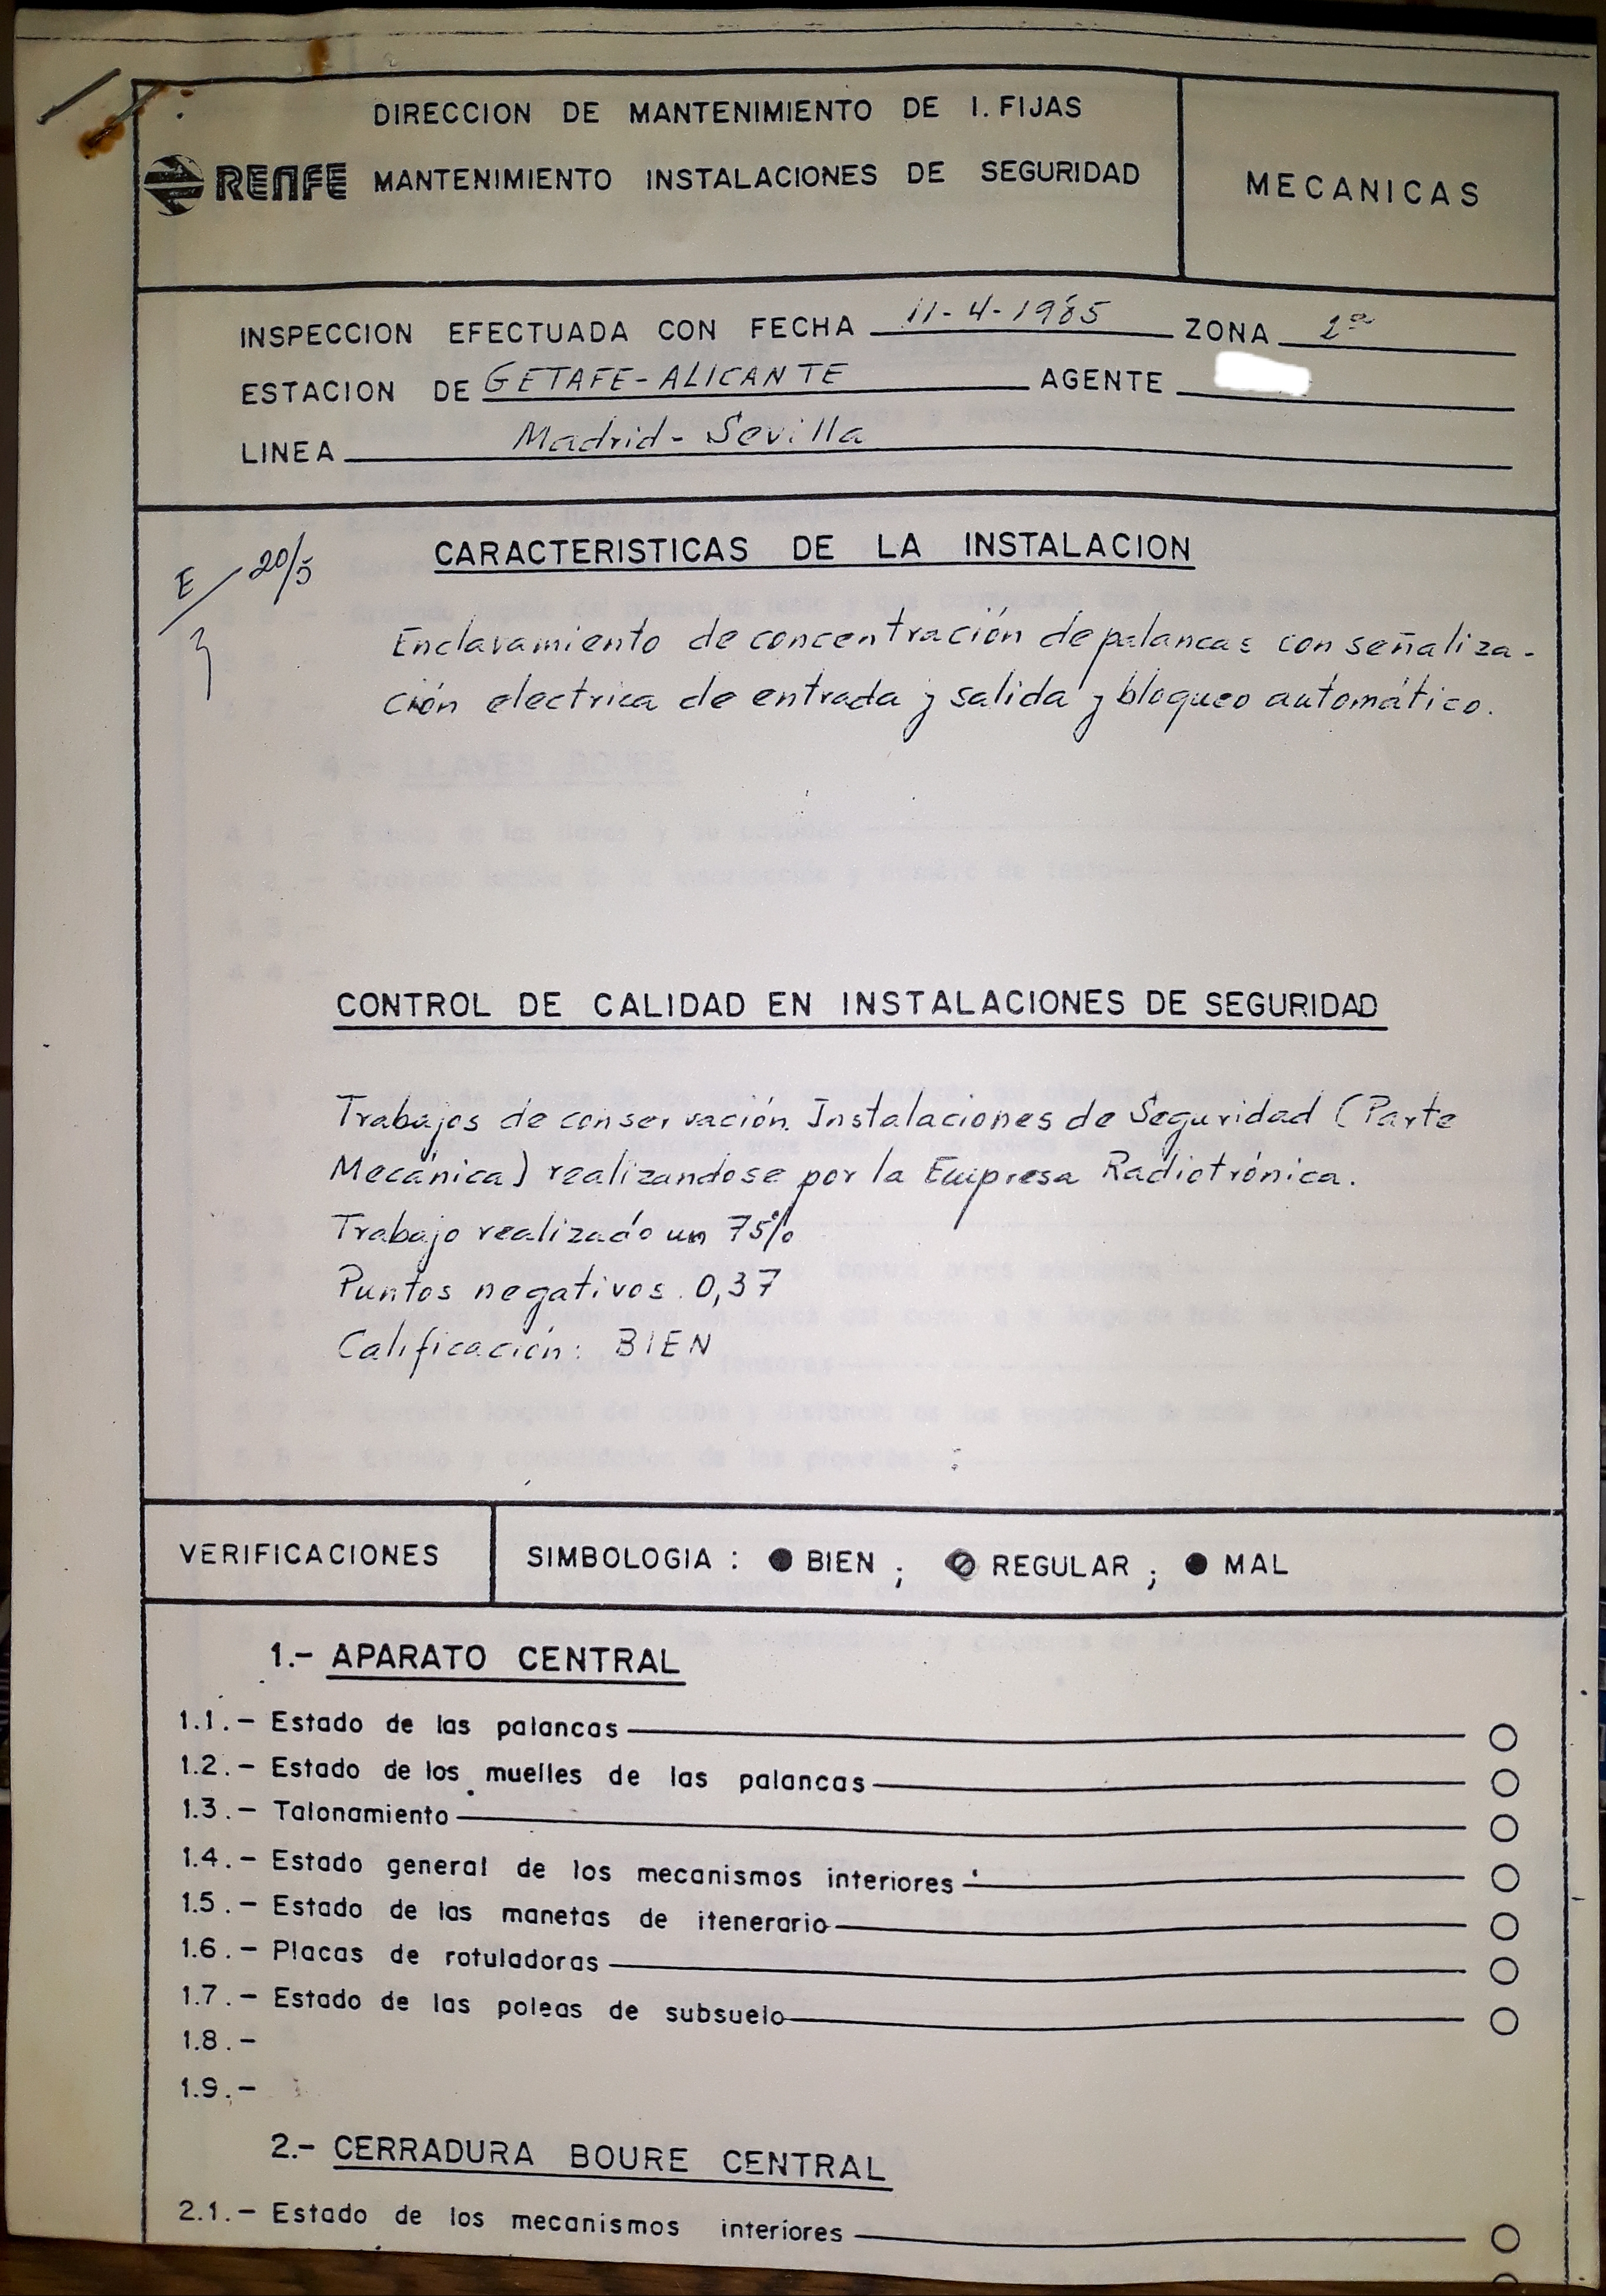 DIRECCION DE MANTENIMIENTO DE I. FIJAS
RENFE MANTENIMIENTO INSTALACIONES DE SEGURIDAD
MECANICAS
INSPECCION EFECTUADA CON FECHA 11-4-1985 ZONA 1ª
ESTACION DE GETAFE-ALICANTE AGENTE
LINEA Madrid-Sevilla
E/20/5
CARACTERISTICAS DE LA INSTALACION
Enclavamiento de concentración de palancas con señaliza-
ción electrica de entrada y salida y bloqueo automático.
CONTROL DE CALIDAD EN INSTALACIONES DE SEGURIDAD
Trabajos de conservación Instalaciones de Seguridad (Parte
Mecánica) realizandose por la Empresa Radiotrónica.
Trabajo realizado un 75%
Puntos negativos. 0,37
Calificación: BIEN
VERIFICACIONES
SIMBOLOGIA : ● BIEN ; ⊘ REGULAR ; ● MAL
1.- APARATO CENTRAL
1.1.- Estado de las palancas
1.2.- Estado de los muelles de las palancas
1.3.- Talonamiento
1.4.- Estado general de los mecanismos interiores
1.5.- Estado de las manetas de itenerario
1.6.- Placas de rotuladoras
1.7.- Estado de las poleas de subsuelo
1.8.-
1.9.-
2.- CERRADURA BOURE CENTRAL
2.1.- Estado de los mecanismos interiores